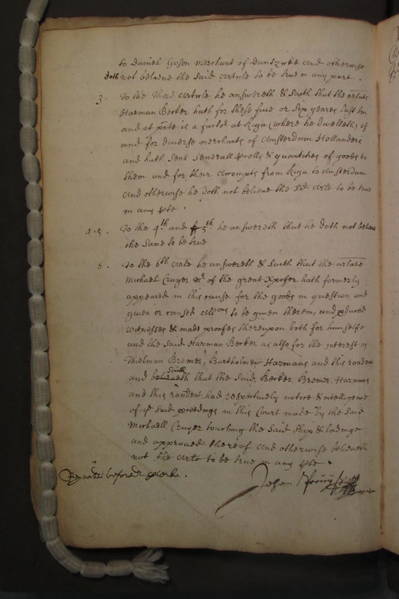 to Daniell Gysen merchant of Dantzwke and otherwise
doth not beleeve the said article to be true in any part.
3. To the third article he answereth & saith that the arlate
Harman Becker hath for these five or six yeares last
and at pnte is a factor at Riga (where he dwelleth) of
and for diverse merchants of Amsterdam Hollanders
and hath sent severall & quantities of goods to
them and for their Accompts from Riga to Amsterdam
and otherwise he doth not beleeve the sd arte to be true
in any pte
4. 5. To the 4th and 5th he answereth that he doth not beleeve
the same to be true
6. To the 6th arte he answereth & saith that the arlate
Michaell Cruger of the great hath formerly
appeared in this cause for the goods in question and
given or caused to be given therein, and produced
witnesses & made proofes thereupon both for himselfe
and the said Harman Becker as also for the interest of
Bremer, Bartholmew Harmans and this rondent
and saith that the said Becker Bremer, Harmans
and this rondent had respectively notice & intelligence
of ye said proceedings in this Court made by the said
Michaell Cruger touching the said ship & ladeinge
and approoved thereof and otherwise beleeveth
not the arte to be true in any pte
Repeated before
Johan